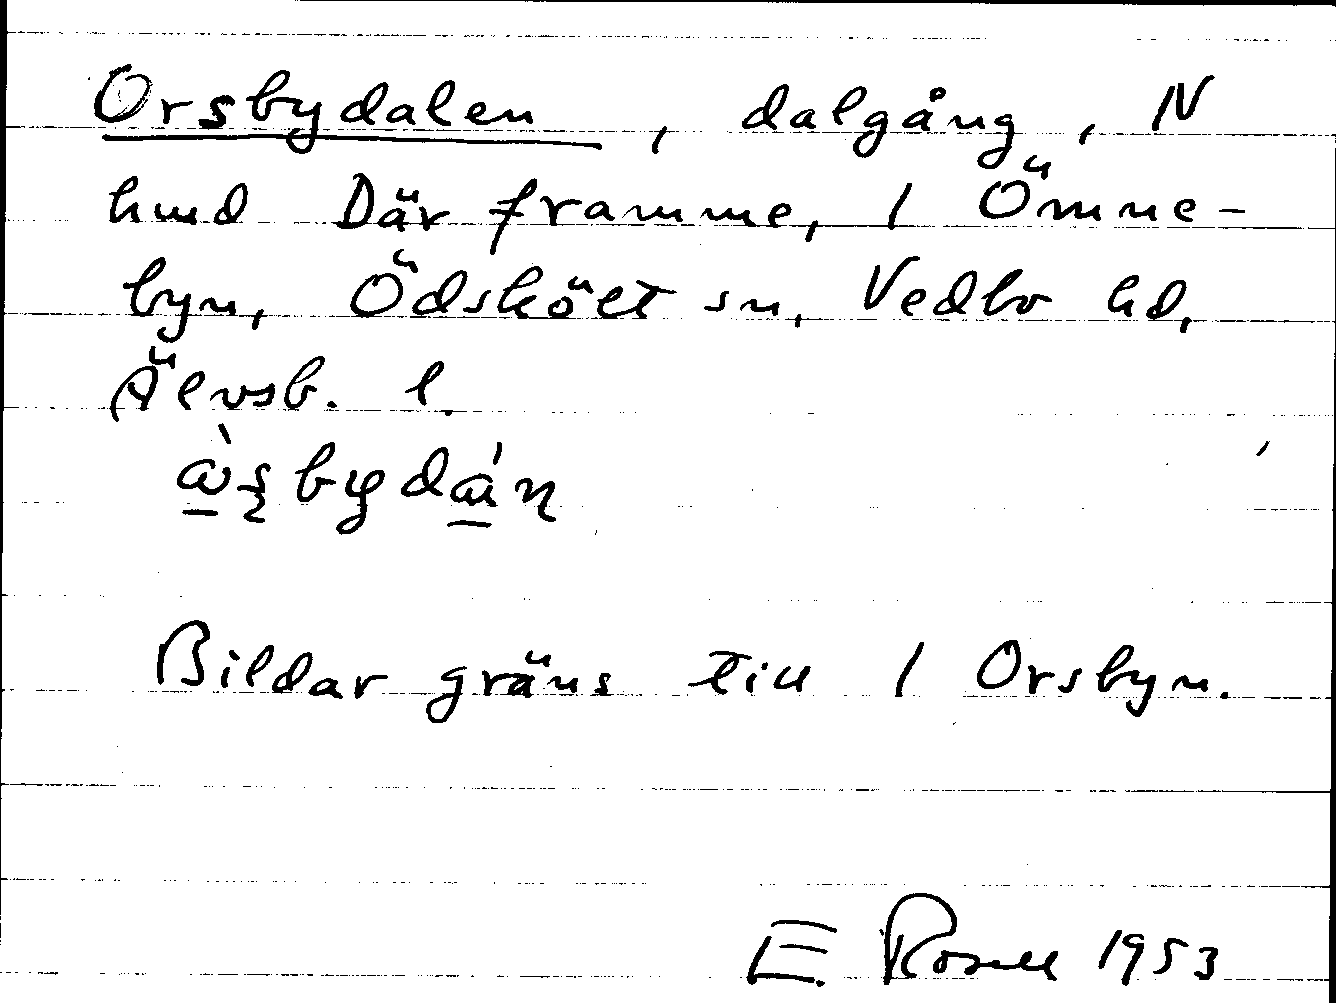 Orsbydalen, dalgång, N
hmd Där framme, 1 Ömme-
byn, Ödskölt sn, Vedbo hd,
Älvsb. l.
Bildar gräns till 1 Orsbyn.
E. Rosell 1953